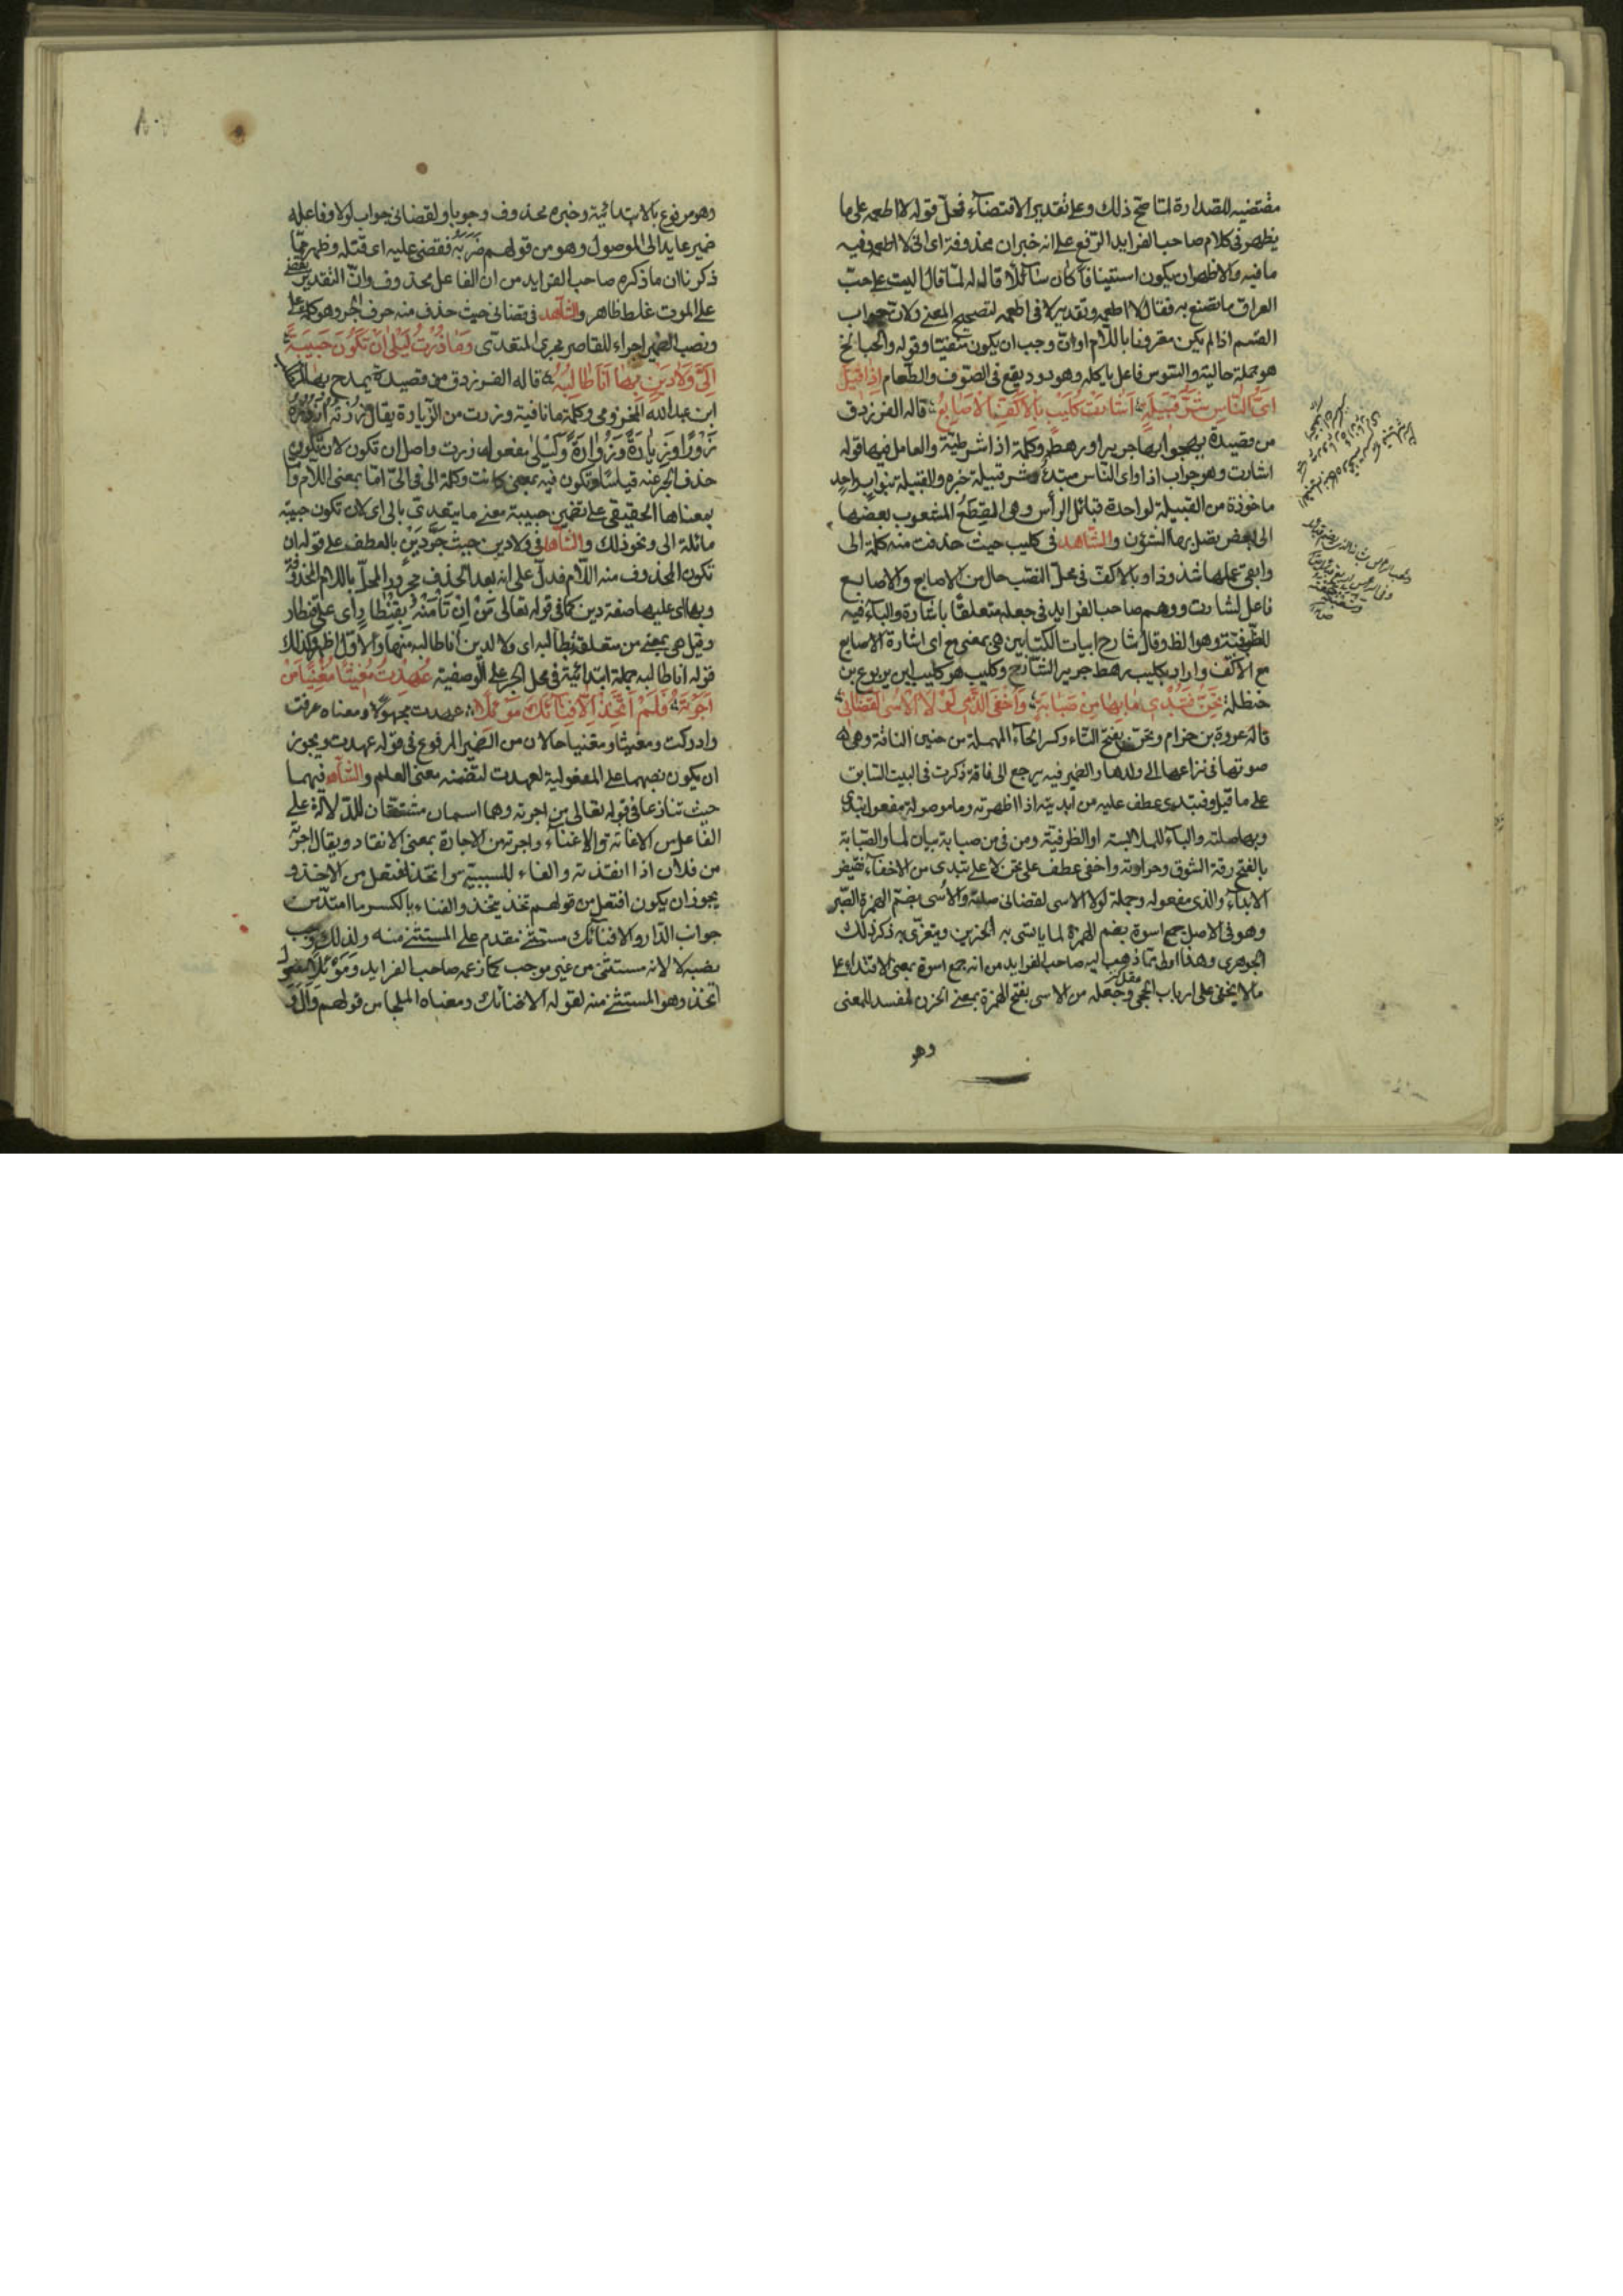 مقتضيه للصدارة لما صح ذلك وعلى تقدير الاقتضاء فحل قوله لا اطعمه على ما
يظهر فى كلام صاحب الفرايد الرفع على انه خبران محذوفة اى انى لا اطعمه وفيه
ما فيه والاظهر ان يكون استينافا كان سائلا قال له لما قال اليت على حب
العراق ما تصنع به فقال لا اطعمه وتقدير لا فى اطعمه لتصحيح المعنى ولان جواب
القسم اذا لم يكن مقرونا باللام او ان وجب ان يكون منفيا وقوله والحب الخ
هو جملة حالية والسوس فاعل ياكله وهو دود يقع فى الصوف والطعام اذا قيل
اى الناس شر قبيلة اشارت كليب بالاكف الاصابع قاله الفرزدق
من قصيدة يهجو بها جريرا ورهطه وكلمة اذا شرطية والعامل فيها قوله
اشارت وهو جواب اذا واى الناس مبتدأ وشر قبيلة خبره والقبيلة بنو اب واحد
ماخوذة من القبيلة لواحدة قبائل الرأس وهى القطع المشعوب بعضها
الى بعض يصل بها الشؤن والشاهد فى كليب حيث حذفت منه كلمة الى
وابقى عملها شذوذا وبالاكف فى محل النصب حال من الاصابع والاصابع
فاعل لشارت ووهم صاحب الفرايد فى جعله متعلقا باشارة والباء فيه
للظرفية وهو الظ وقال شارح ابيات الكتابين هى بمعنى مع اى اشارة الاصابع
مع الاكف واراد بكليب رهط جرير الشاعر وكليب هو كليب ابن يربوع بن
حنظلة تحن فتبدى ما بها من صبابة واخفى الذى لولا الاسى لقضانى
قاله عروة بن حزام وتحن بفتح التاء وكسر الحاء المهملة من حنين الناقة وهى
صوتها فى نزاعها الى ولدها والضمير فيه يرجع الى ناقة ذكرت فى البيت السابق
على ما قيل وفتبدى عطف عليه من ابديته اذا اظهرته وما موصولة مفعول تبدى
وبها صلته والباء للملابسة او الظرفية ومن فى من صبابة بيان لما والصبابة
بالفتح رقة الشوق وحرارته واخفى عطف على تحن لا على تبدى من الاخفاء نقيض
الابداء والذى مفعوله وجملة لولا الاسى لقضانى صلته والاسى بضم الهمزة الصبر
وهو فى الاصل جمع اسوة بضم الهمزة لما ياتسى به الحزين ويتعزى به ذكر ذلك
الجوهرى وهذا اولى مما ذهب اليه صاحب الفرايد من انه جمع اسوة بمعنى الاقتداء
ما لا يخفى على ارباب الحجى وجعله من الاسى بفتح الهمزة بمعنى الحزن مفسد للمعنى
وهو
وهو مرفوع بالابتدائية وخبره محذوف وجوبا ولقضانى جواب لولا وفاعله
ضمير عايد الى الموصول وهو من قولهم ضربه فقضى عليه اى قتله وظهر مما
ذكرنا ان ما ذكره صاحب الفرايد من ان الفاعل محذوف وان التقدير يقضى
على الموت غلط ظاهر والشاهد فى قضانى حيث حذف منه حرف الجر وهو كلمة على
ونصب الضمير اجراء للقاصر مجرى المتعدى وما زرت ليلى ان تكون حبيبة
الى ولا دين بها انا طالبه قاله الفرزدق من قصيدة يمدح بها
ابن عبد الله المخزومى وكلمة ما نافية وزرت من الزيارة يقال زرته ازوره
زورا وزيارة وزوارة وليلى مفعول لها زرت واصل ان تكون لان تكون
حذف الجر عنه قياسا وتكون فيه بمعنى كانت وكلمة الى فى الى اما بمعنى اللام واما
بمعناها الحقيقى على تضمين حبيبة معنى ما يتعدى بالى اى لان تكون حبيبة
مائلة الى ونحو ذلك والشاهد فى ولا دين حيث جر دين بالعطف على قوله ان
تكون المحذوف منه اللام فدل على انه بعد الحذف مجرور المحل باللام المحذوفة
وبها اى عليها صفة دين كما فى قوله تعالى من ان تأمنه بقنطار اى على قنطار
وقيل هى بمعنى من متعلقة بطالبه اى ولا لدين انا طالبه منها والاول اظهر وكذلك
قوله انا طالبه جملة ابتدائية فى محل الجر على الوصفية عهدت مغيثا مغنيا من
اجرته فلم اتخذ الا فناءك موئلا عهدت مجهولا ومعناه عرفت
وادركت ومغيثا ومغنيا حالان من الضمير المرفوع فى قوله عهدت ويجوز
ان يكون نصبهما على المفعولية لعهدت لتضمنه معنى العلم والشاهد فيهما
حيث تنازعا فى قوله تعالى من اجرته وهما اسمان مشتقان للدلالة على
الفاعل من الاغاثة والاغناء واجرته من الاجارة بمعنى الانقاذ ويقال اجرته
من فلان اذا انقذته والفاء للسببية واتخذ افتعل من الاخذ و
يجوز ان يكون افتعل من قولهم تخذ يتخذ والفناء بالكسر ما امتد من
جوانب الدار والا فنائك مستثنى مقدم على المستثنى منه ولذلك وجب
نصبه لا لانه مستثنى من غير موجب كما زعمه صاحب الفرايد وموئلا مفعول
اتخذ وهو المستثنى منه لقوله الا فنائك ومعناه الملجأ من قولهم وأل